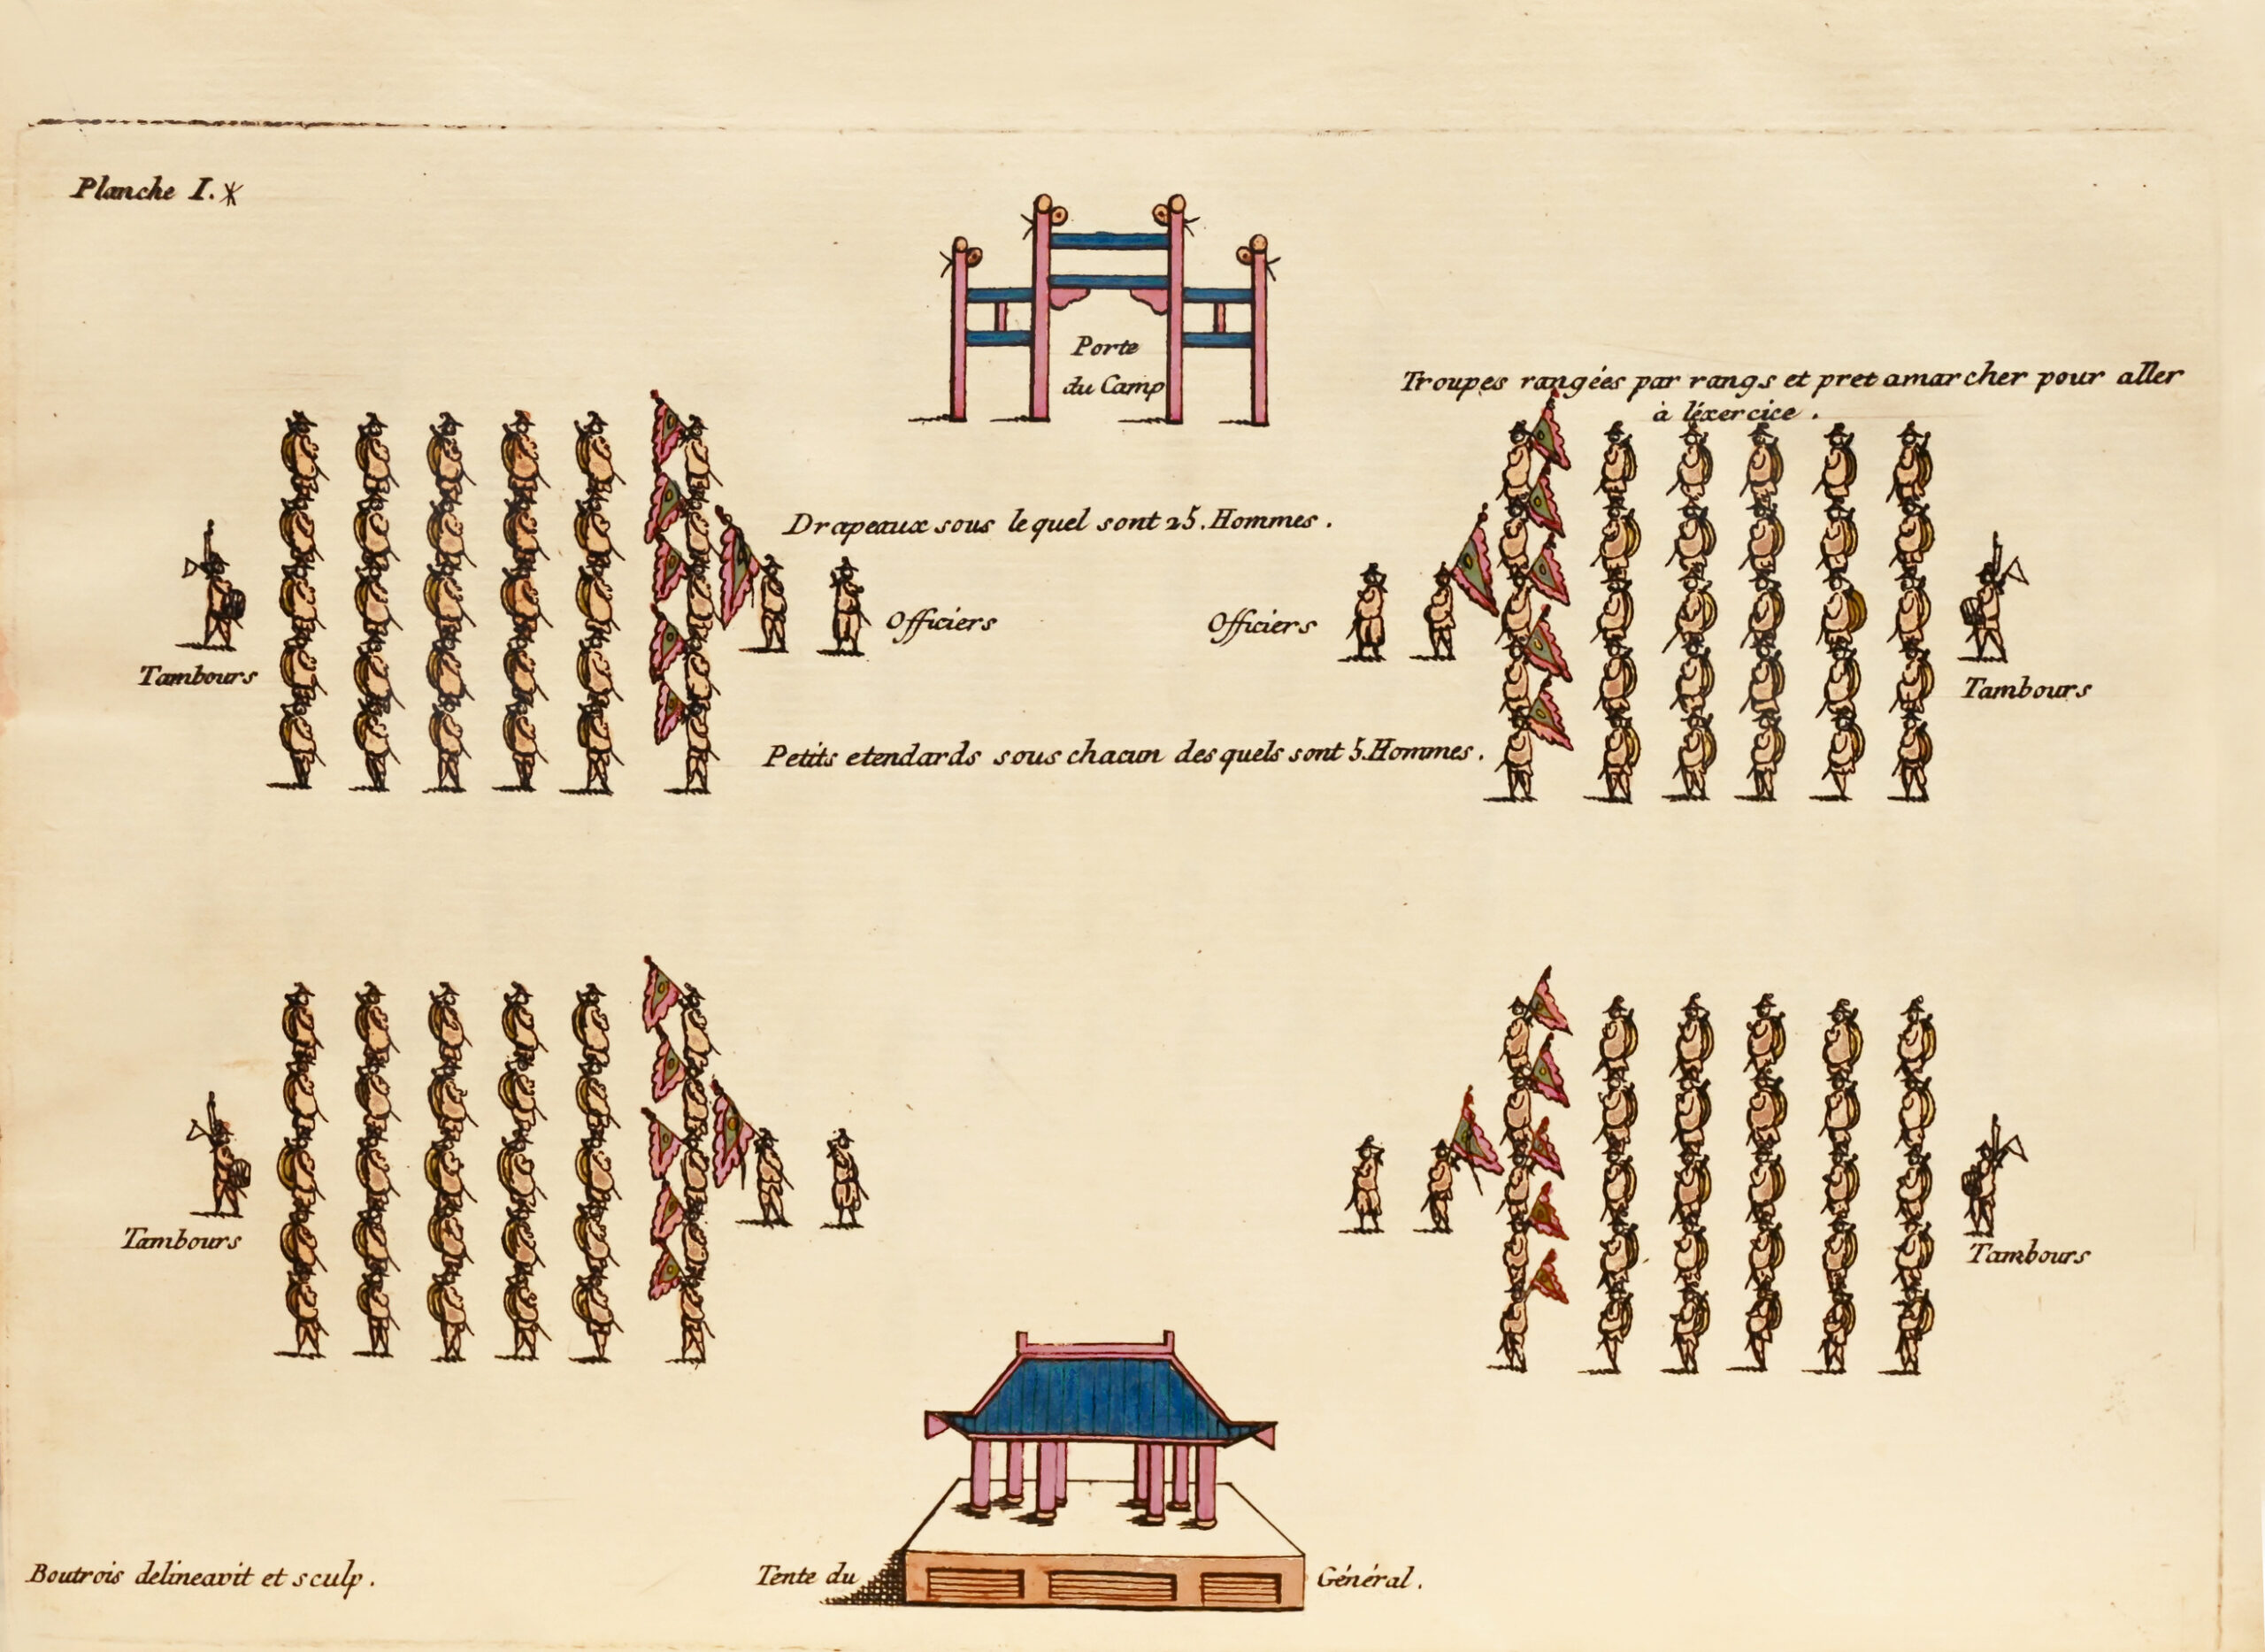 Planche I.
Porte
du Camp
Troupes rangées par rangs et pret amarcher pour aller
à léxercice .
Drapeaux sous lequel sont 25. Hommes .
Officiers
Officiers
Tambours
Tambours
Petits etendards sous chacun des quels sont 5. Hommes .
Tambours
Tambours
Boutrois delineavit et sculp .
Tente du Général .